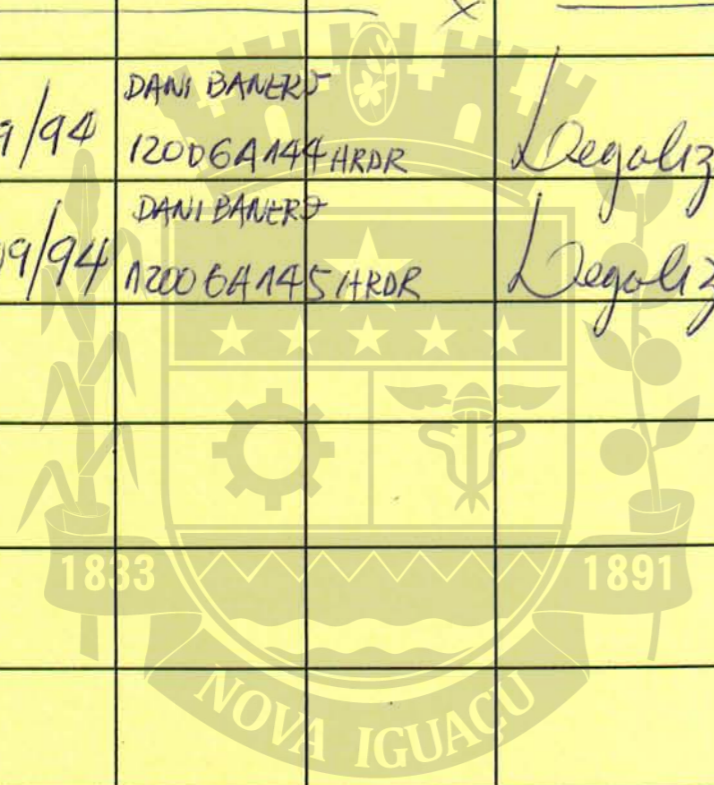 9/94 DANI BANERJ
12006A144 HRDR Legaliz
DANI BANERJ
09/94 12006A145 HRDR Legaliz
1833 1891
NOVA IGUAÇU